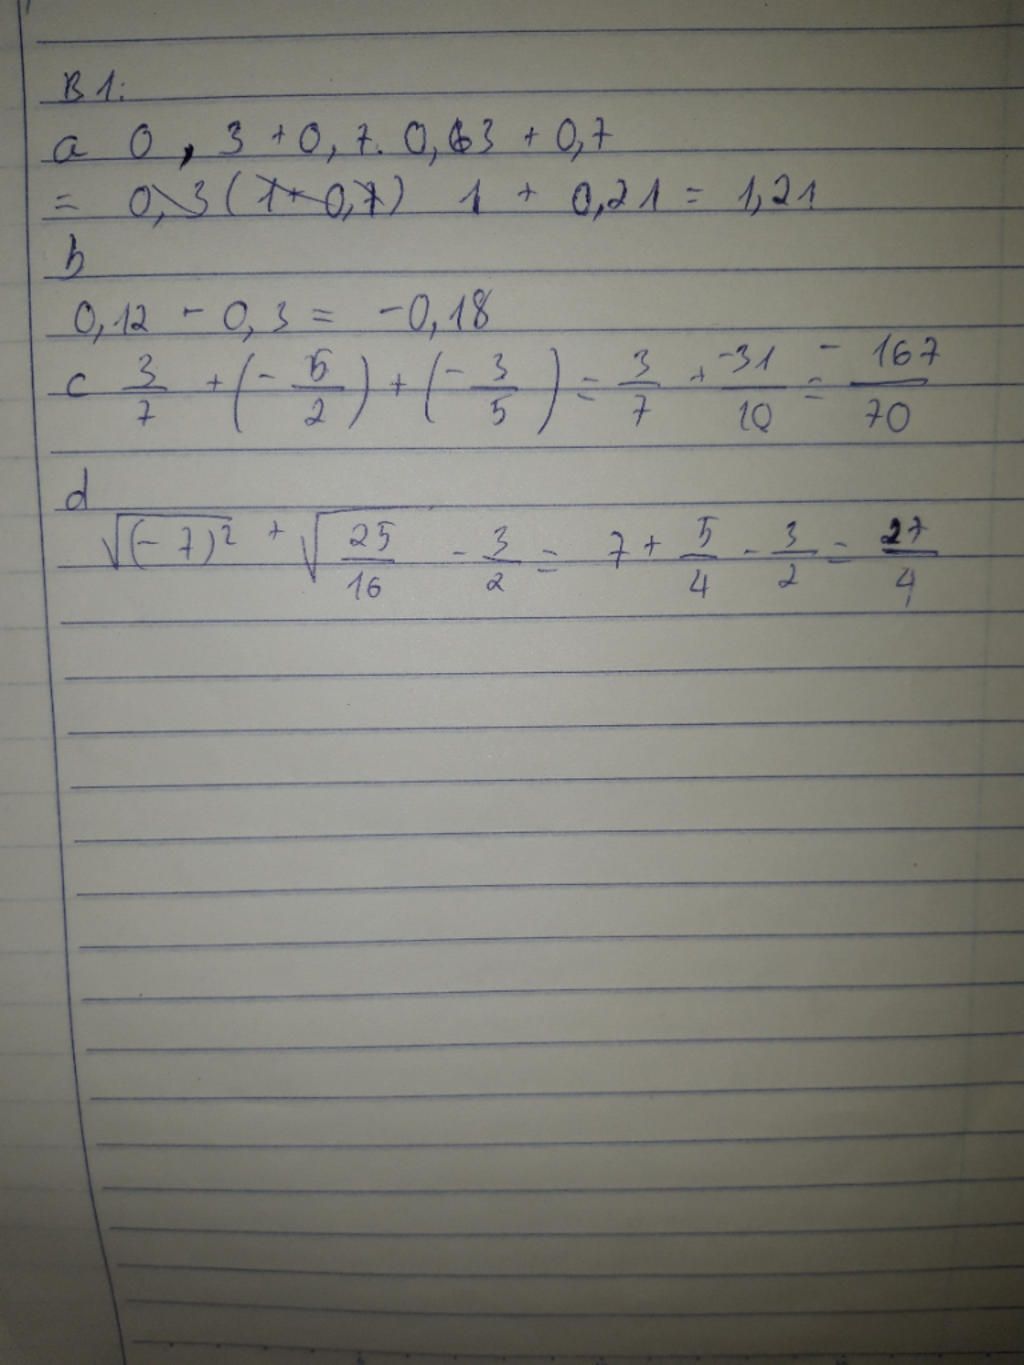 B1:
a 0,3 + 0,7. 0,3 + 0,7
= 0,3(1+0,7) 1 + 0,21 = 1,21
b
0,12 - 0,3 = -0,18
c 3/7 + (- 5/2) + (- 3/5) = 3/7 + -31/10 = - 167/70
d
√(-7)² + √25/16 - 3/2 = 7 + 5/4 - 3/2 = 27/4